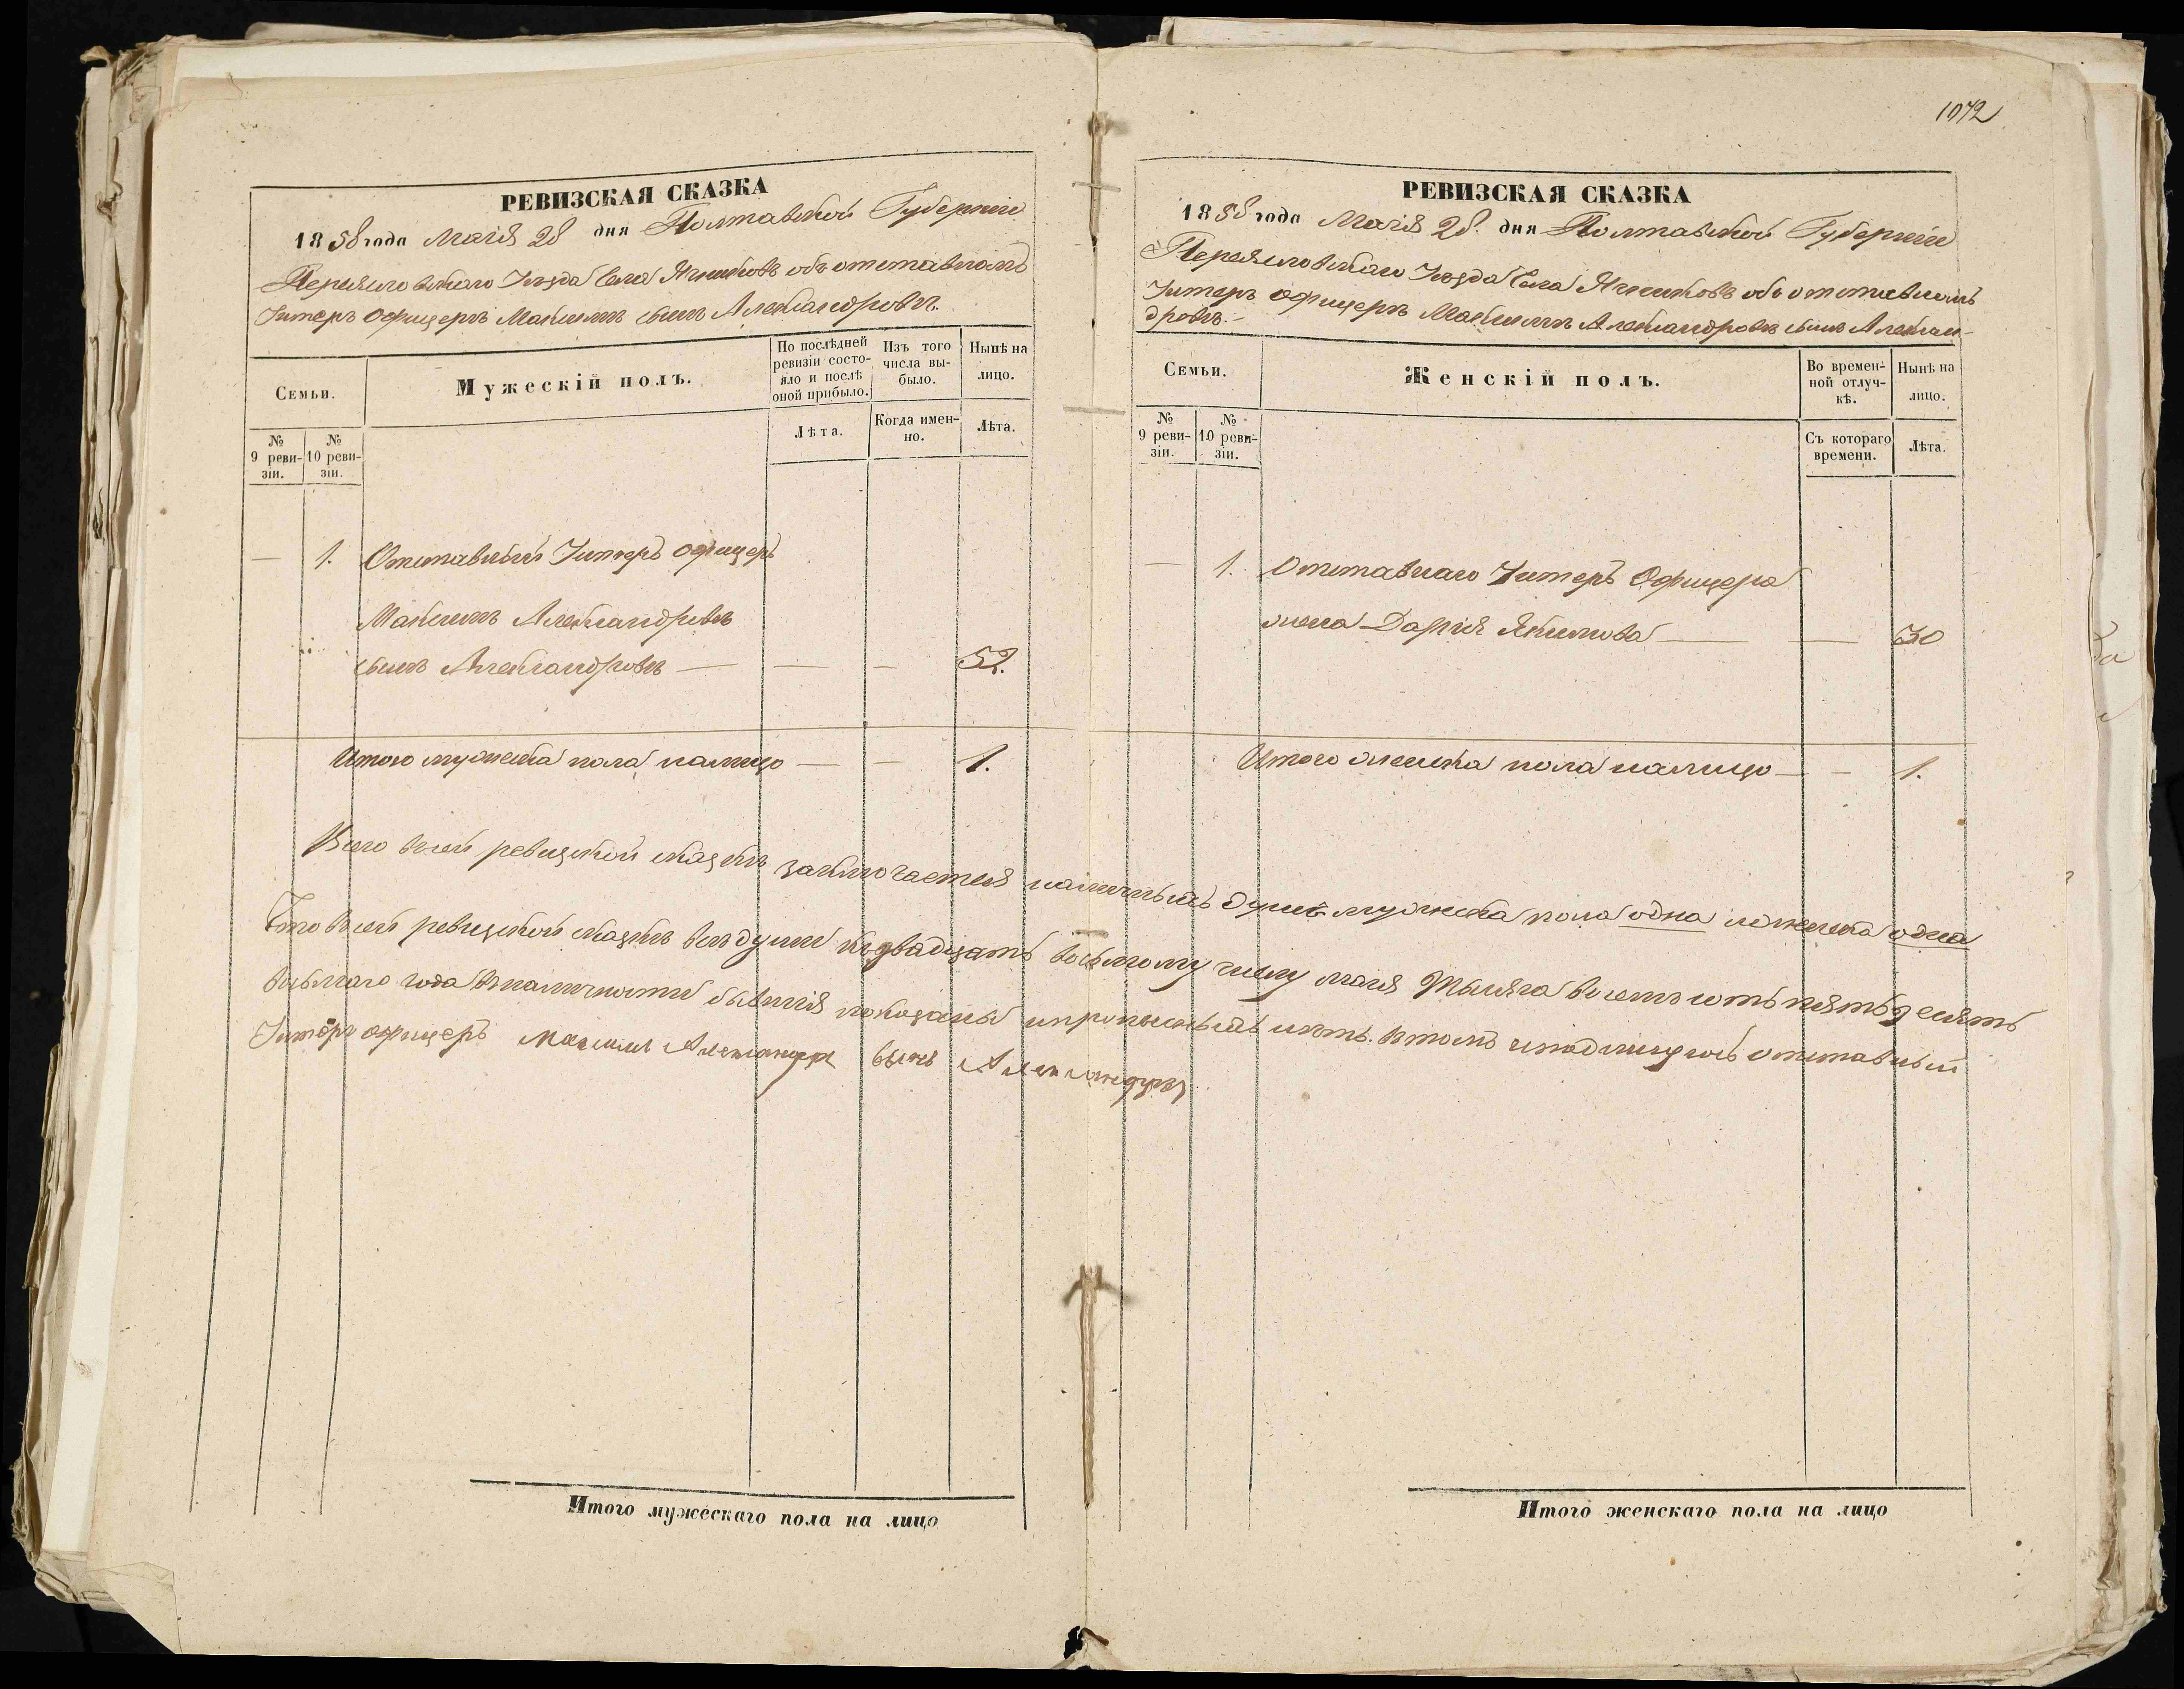 1072
РЕВИЗСКАЯ СКАЗКА
1858 года Маія 28 дня Полтавской Губерніи
Переясловскаго Уѣзда Села Ячниковъ объ отставномъ
Унтеръ Офицерѣ Максимѣ сынѣ Александровѣ.
Семьи.
Мужескій полъ.
По послѣдней
ревизіи состо-
яло и послѣ
оной прибыло.
Изъ того
числа вы-
было.
Нынѣ на
лицо.
№
9 реви-
зіи.
№
10 реви-
зіи.
Лѣта.
Когда имен-
но.
Лѣта.
— 1. Отставный Унтеръ Офицеръ
Максимъ Александровъ
сынъ Александровъ — — — 52.
Итого мужеска пола налицо — — 1.
РЕВИЗСКАЯ СКАЗКА
1858 года Маія 28. дня Полтавской Губерніи
Переясловскаго Уѣзда Села Ячниковъ объ отставномъ
Унтеръ Офицерѣ Максимѣ Александровѣ сынѣ Алексан-
дровѣ.
Семьи.
Женскій полъ.
Во времен-
ной отлуч-
кѣ.
Нынѣ на
лицо.
№
9 реви-
зіи.
№
10 реви-
зіи.
Съ котораго
времени.
Лѣта.
— 1. Отставнаго Унтеръ Офицера
жена Дарія Якимова — — 30
Итого женска пола налицо — — 1.
Всего всей ревизской сказкѣ заключается наличныхъ душъ мужеска пола одна иженска одна
Что всей ревизской сказкѣ всѣ души къ двадцать восьмому числу маія Тысяча восемъ сотъ пятьдесятъ
восьмаго года вналичности бывшія показаны ипрописныхъ нѣтъ. втомъ иподпишусь отставный
Унтеръ офицеръ Максимъ Александръ сынъ Александров
Итого мужескаго пола на лицо
Итого женскаго пола на лицо